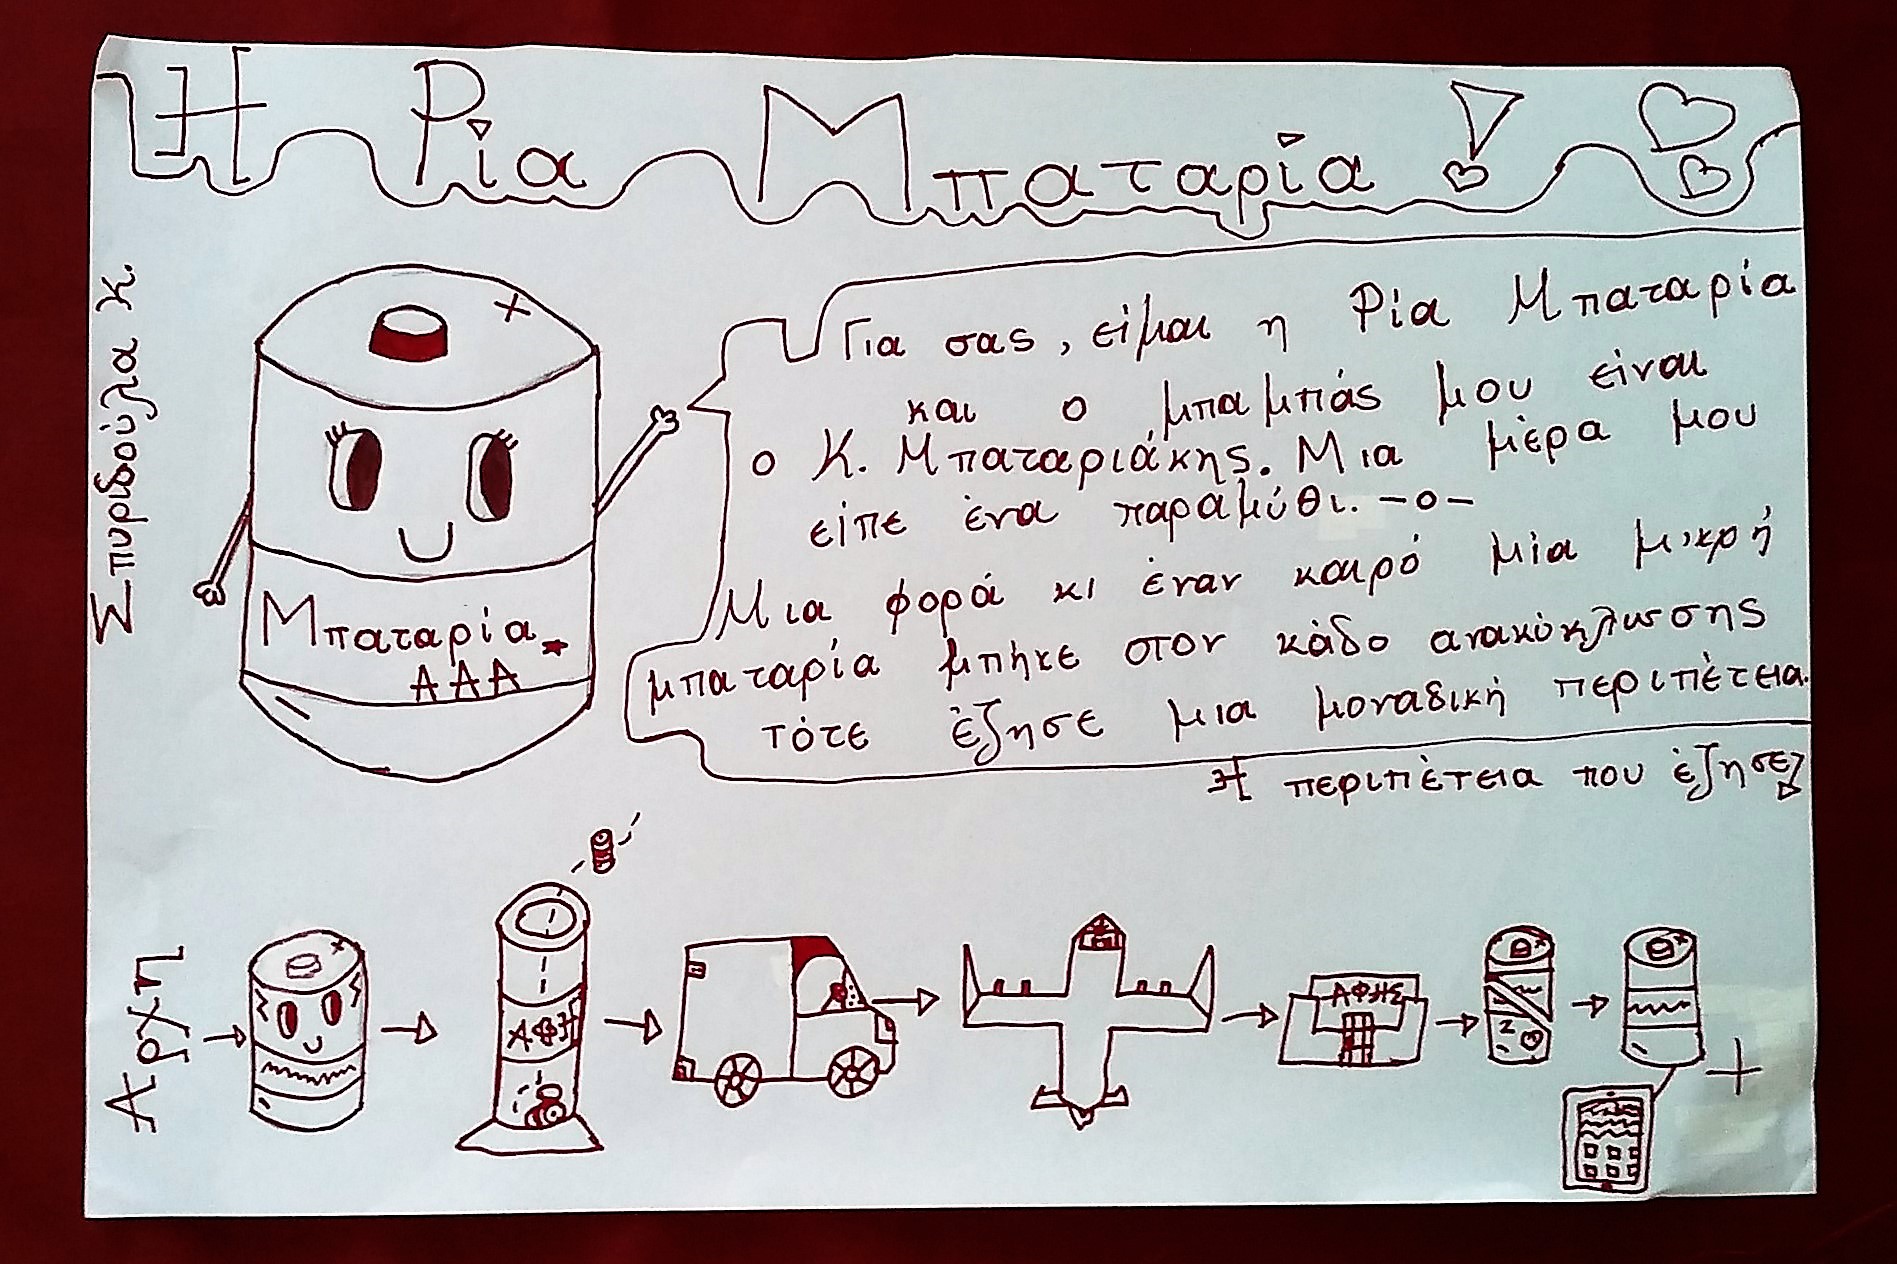 Η Ρία Μπαταρία!
Σπυριδούλα Κ.
Γιa σας, είμαι η Ρία Μπαταρία
και ο μπαμπάς μου είναι
ο Κ. Μπαταριάκης. Μια μέρα μου
είπε ένα παραμύθι. -ο-
Μια φορά κι έναν καιρό μία μικρή
μπαταρία μπήκε στον κάδο ανακύκλωσης
τότε έζησε μια μοναδική περιπέτεια.
Μπαταρία
ΑΑΑ
+
Η περιπέτεια που έζησε
Αρχή
+
ΑΦΗ
ΑΦΗΣ
+
+
+